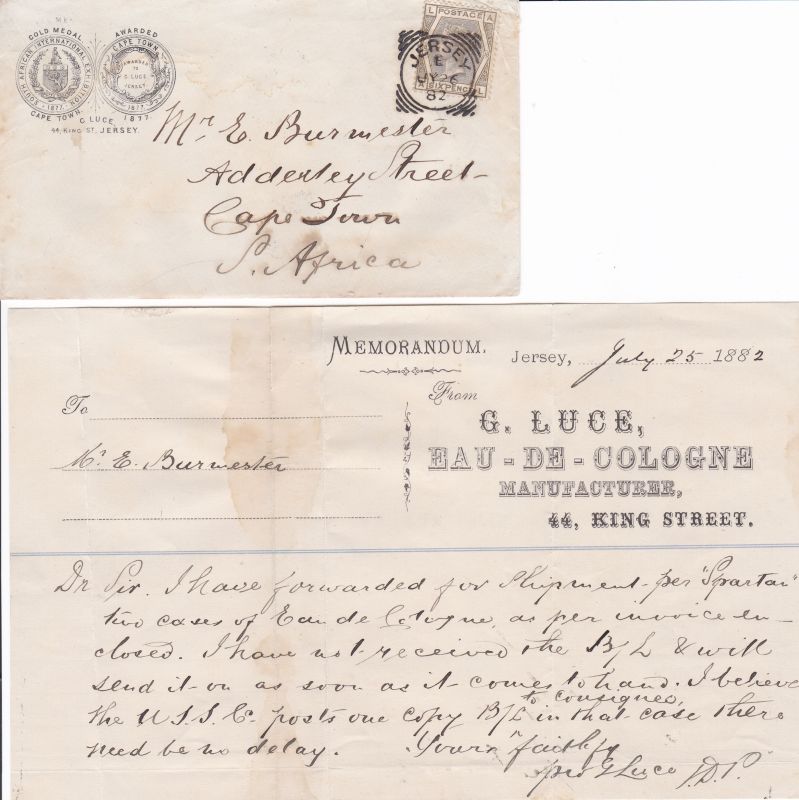 GOLD MEDAL
SOUTH AFRICAN INTERNATIONAL EXHIBITION
1877.
CAPE TOWN.
AWARDED
CAPE TOWN
AWARDED
TO
G. LUCE
JERSEY
1877.
1877.
G. LUCE,
44, KING ST. JERSEY.
L POSTAGE A
SIXPENCE L
JERSEY
E
JY 26
82
Mr E. Burmester
Adderley Street
Cape Town
S. Africa
MEMORANDUM.
Jersey, July 25 1882
From
To
G. LUCE,
Mr E. Burmester
EAU-DE-COLOGNE
MANUFACTURER,
44, KING STREET.
Dr Sir. I have forwarded for shipment per "Spartan"
two cases of Eau de Cologne, as per invoice en-
closed. I have not received the B/L & will
send it on as soon as it comes to hand. I believe
the U.S.S. Co posts one copy B/L to consignee, in that case there
need be no delay. Yours faithfy
pro G Luce J.D.P.